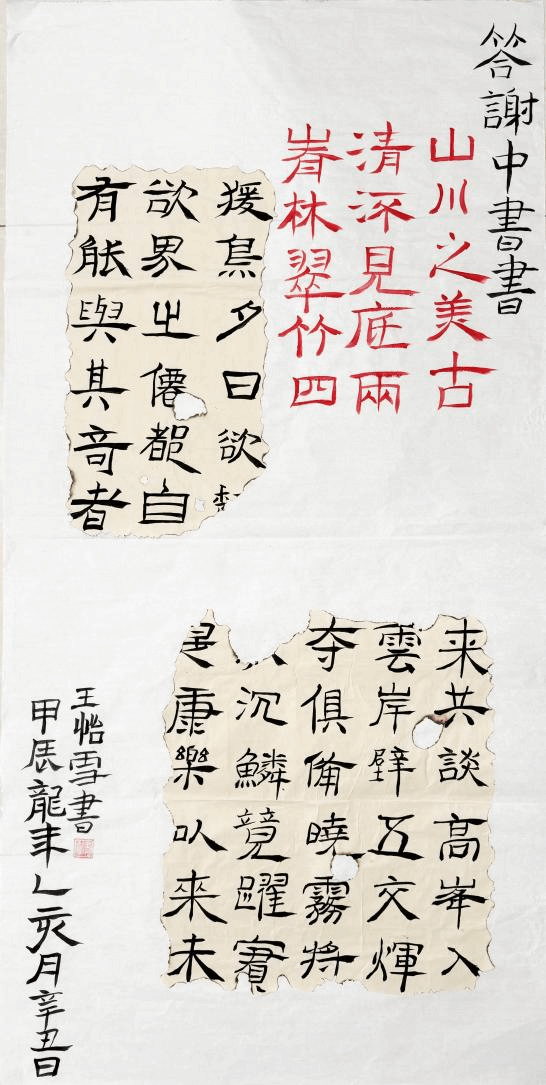 答謝中書書
山川之美古
清流見底兩
青林翠竹四
猨鳥夕日欲
欲界之僊都自
有能與其奇者
来共談高峯入
雲岸壁五交輝
夺俱俻曉霧将
沉鱗競躍實
是康樂以來未
王怡雪書
甲辰龍年乙亥月辛丑日